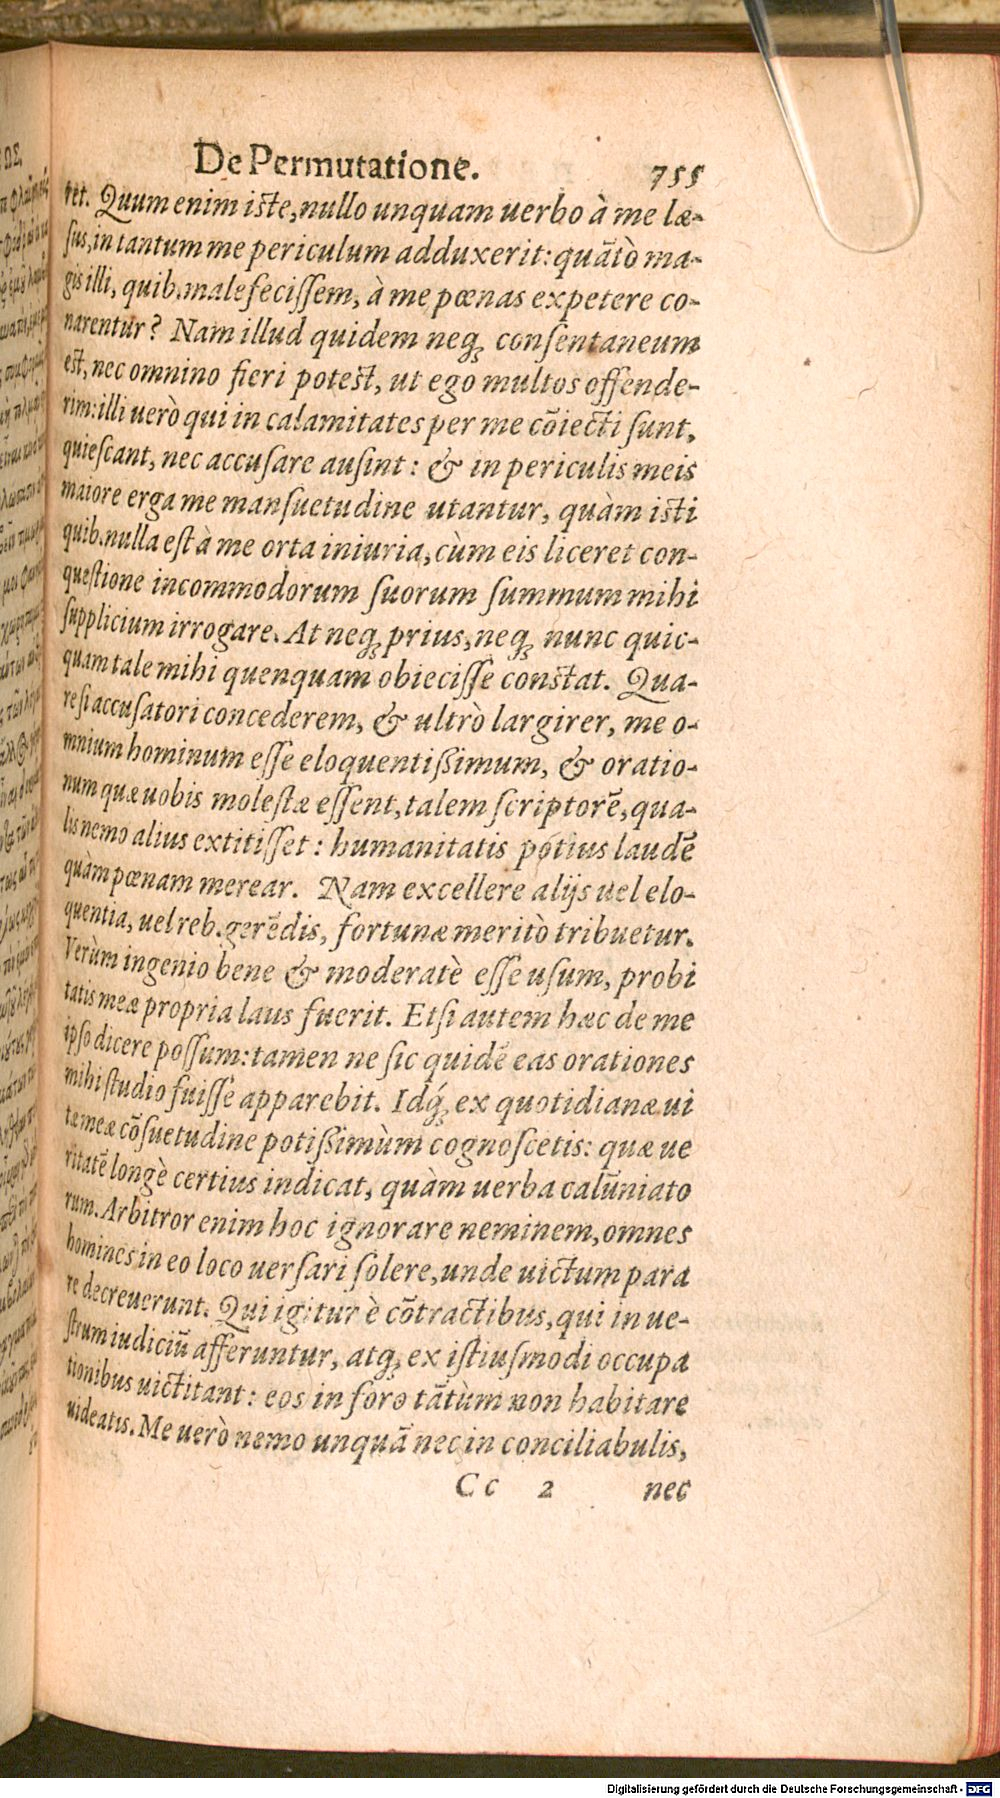 De Permutatione. 755
ret. Quum enim iste, nullo unquam uerbo à me læ-
sus, in tantum me periculum adduxerit: quãtò ma-
gis illi, quib. malefecissem, à me pœnas expetere co-
narentur? Nam illud quidem neq; consentaneum
est, nec omnino fieri potest, ut ego multos offende-
rim: illi uerò qui in calamitates per me cõiecti sunt,
quiescant, nec accusare ausint: & in periculis meis
maiore erga me mansuetudine utantur, quàm isti
quib. nulla est à me orta iniuria, cùm eis liceret con-
questione incommodorum suorum summum mihi
supplicium irrogare. At neq; prius, neq; nunc quic-
quam tale mihi quenquam obiecisse constat. Qua-
re si accusatori concederem, & ultrò largirer, me o-
mnium hominum esse eloquentißimum, & oratio-
num quæ uobis molestæ essent, talem scriptorẽ, qua-
lis nemo alius extitisset: humanitatis potius laudẽ
quàm pœnam merear. Nam excellere alijs uel elo-
quentia, uel reb. gerẽdis, fortunæ meritò tribuetur.
Verùm ingenio bene & moderatè esse usum, probi
tatis meæ propria laus fuerit. Etsi autem hæc de me
ipso dicere possum: tamen ne sic quidẽ eas orationes
mihi studio fuisse apparebit. Idq́; ex quotidianæ ui
tæ meæ cõsuetudine potißimùm cognoscetis: quæ ue
ritatẽ longè certius indicat, quàm uerba calũniato
rum. Arbitror enim hoc ignorare neminem, omnes
homines in eo loco uersari solere, unde uictum para
re decreuerunt. Qui igitur è cõtractibus, qui in ue-
strum iudiciũ afferuntur, atq; ex istiusmodi occupa
tionibus uictitant: eos in foro tãtùm non habitare
uideatis. Me uerò nemo unquã nec in conciliabulis,
Cc 2 nec
Digitalisierung gefördert durch die Deutsche Forschungsgemeinschaft - DFG